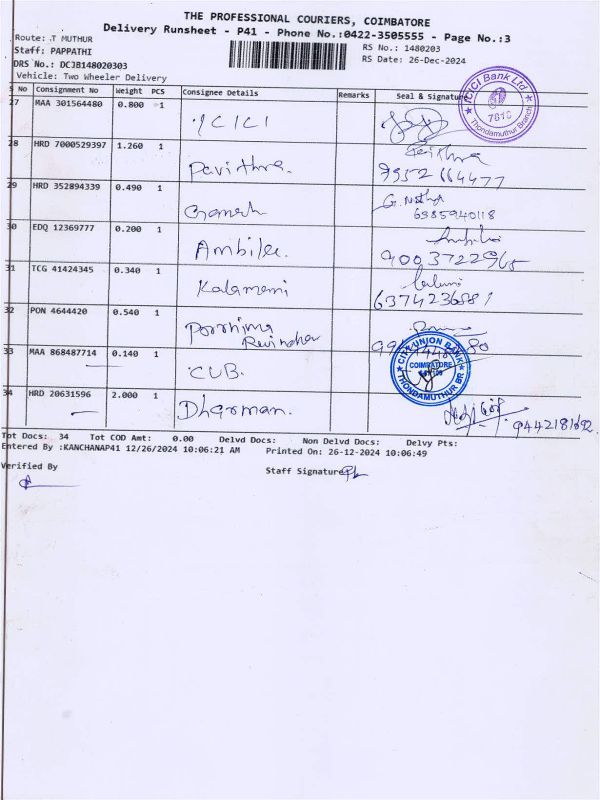 THE PROFESSIONAL COURIERS, COIMBATORE
Delivery Runsheet - P41 - Phone No.:0422-3505555 - Page No.:3
Route: T MUTHUR
RS No.: 1480203
Staff: PAPPATHI
RS Date: 26-Dec-2024
DRS No.: DCJB148020303
Vehicle: Two Wheeler Delivery
S No Consignment No Weight PCS Consignee Details Remarks Seal & Signature
27 MAA 301564480 0.800 1 ICICI
ICICI Bank Ltd 7816 Thondamuthur Branch
28 HRD 7000529397 1.260 1 Pavithra. Pavithra
9952664477
29 HRD 352894339 0.490 1 Ganesh
6385940118
30 EDQ 12369777 0.200 1 Ambilee.
9003722965
31 TCG 41424345 0.340 1 Kalamani
6374236881
32 PON 4644420 0.540 1 Poornima
Ravindhar
33 MAA 868487714 0.140 1 CUB.
CITY UNION BANK COIMBATORE THONDAMUTHUR BR
34 HRD 20631596 2.000 1 Dharman.
9442181692.
Tot Docs: 34 Tot COD Amt: 0.00 Delvd Docs: Non Delvd Docs: Delvy Pts:
Entered By :KANCHANAP41 12/26/2024 10:06:21 AM Printed On: 26-12-2024 10:06:49
Verified By
Staff Signature